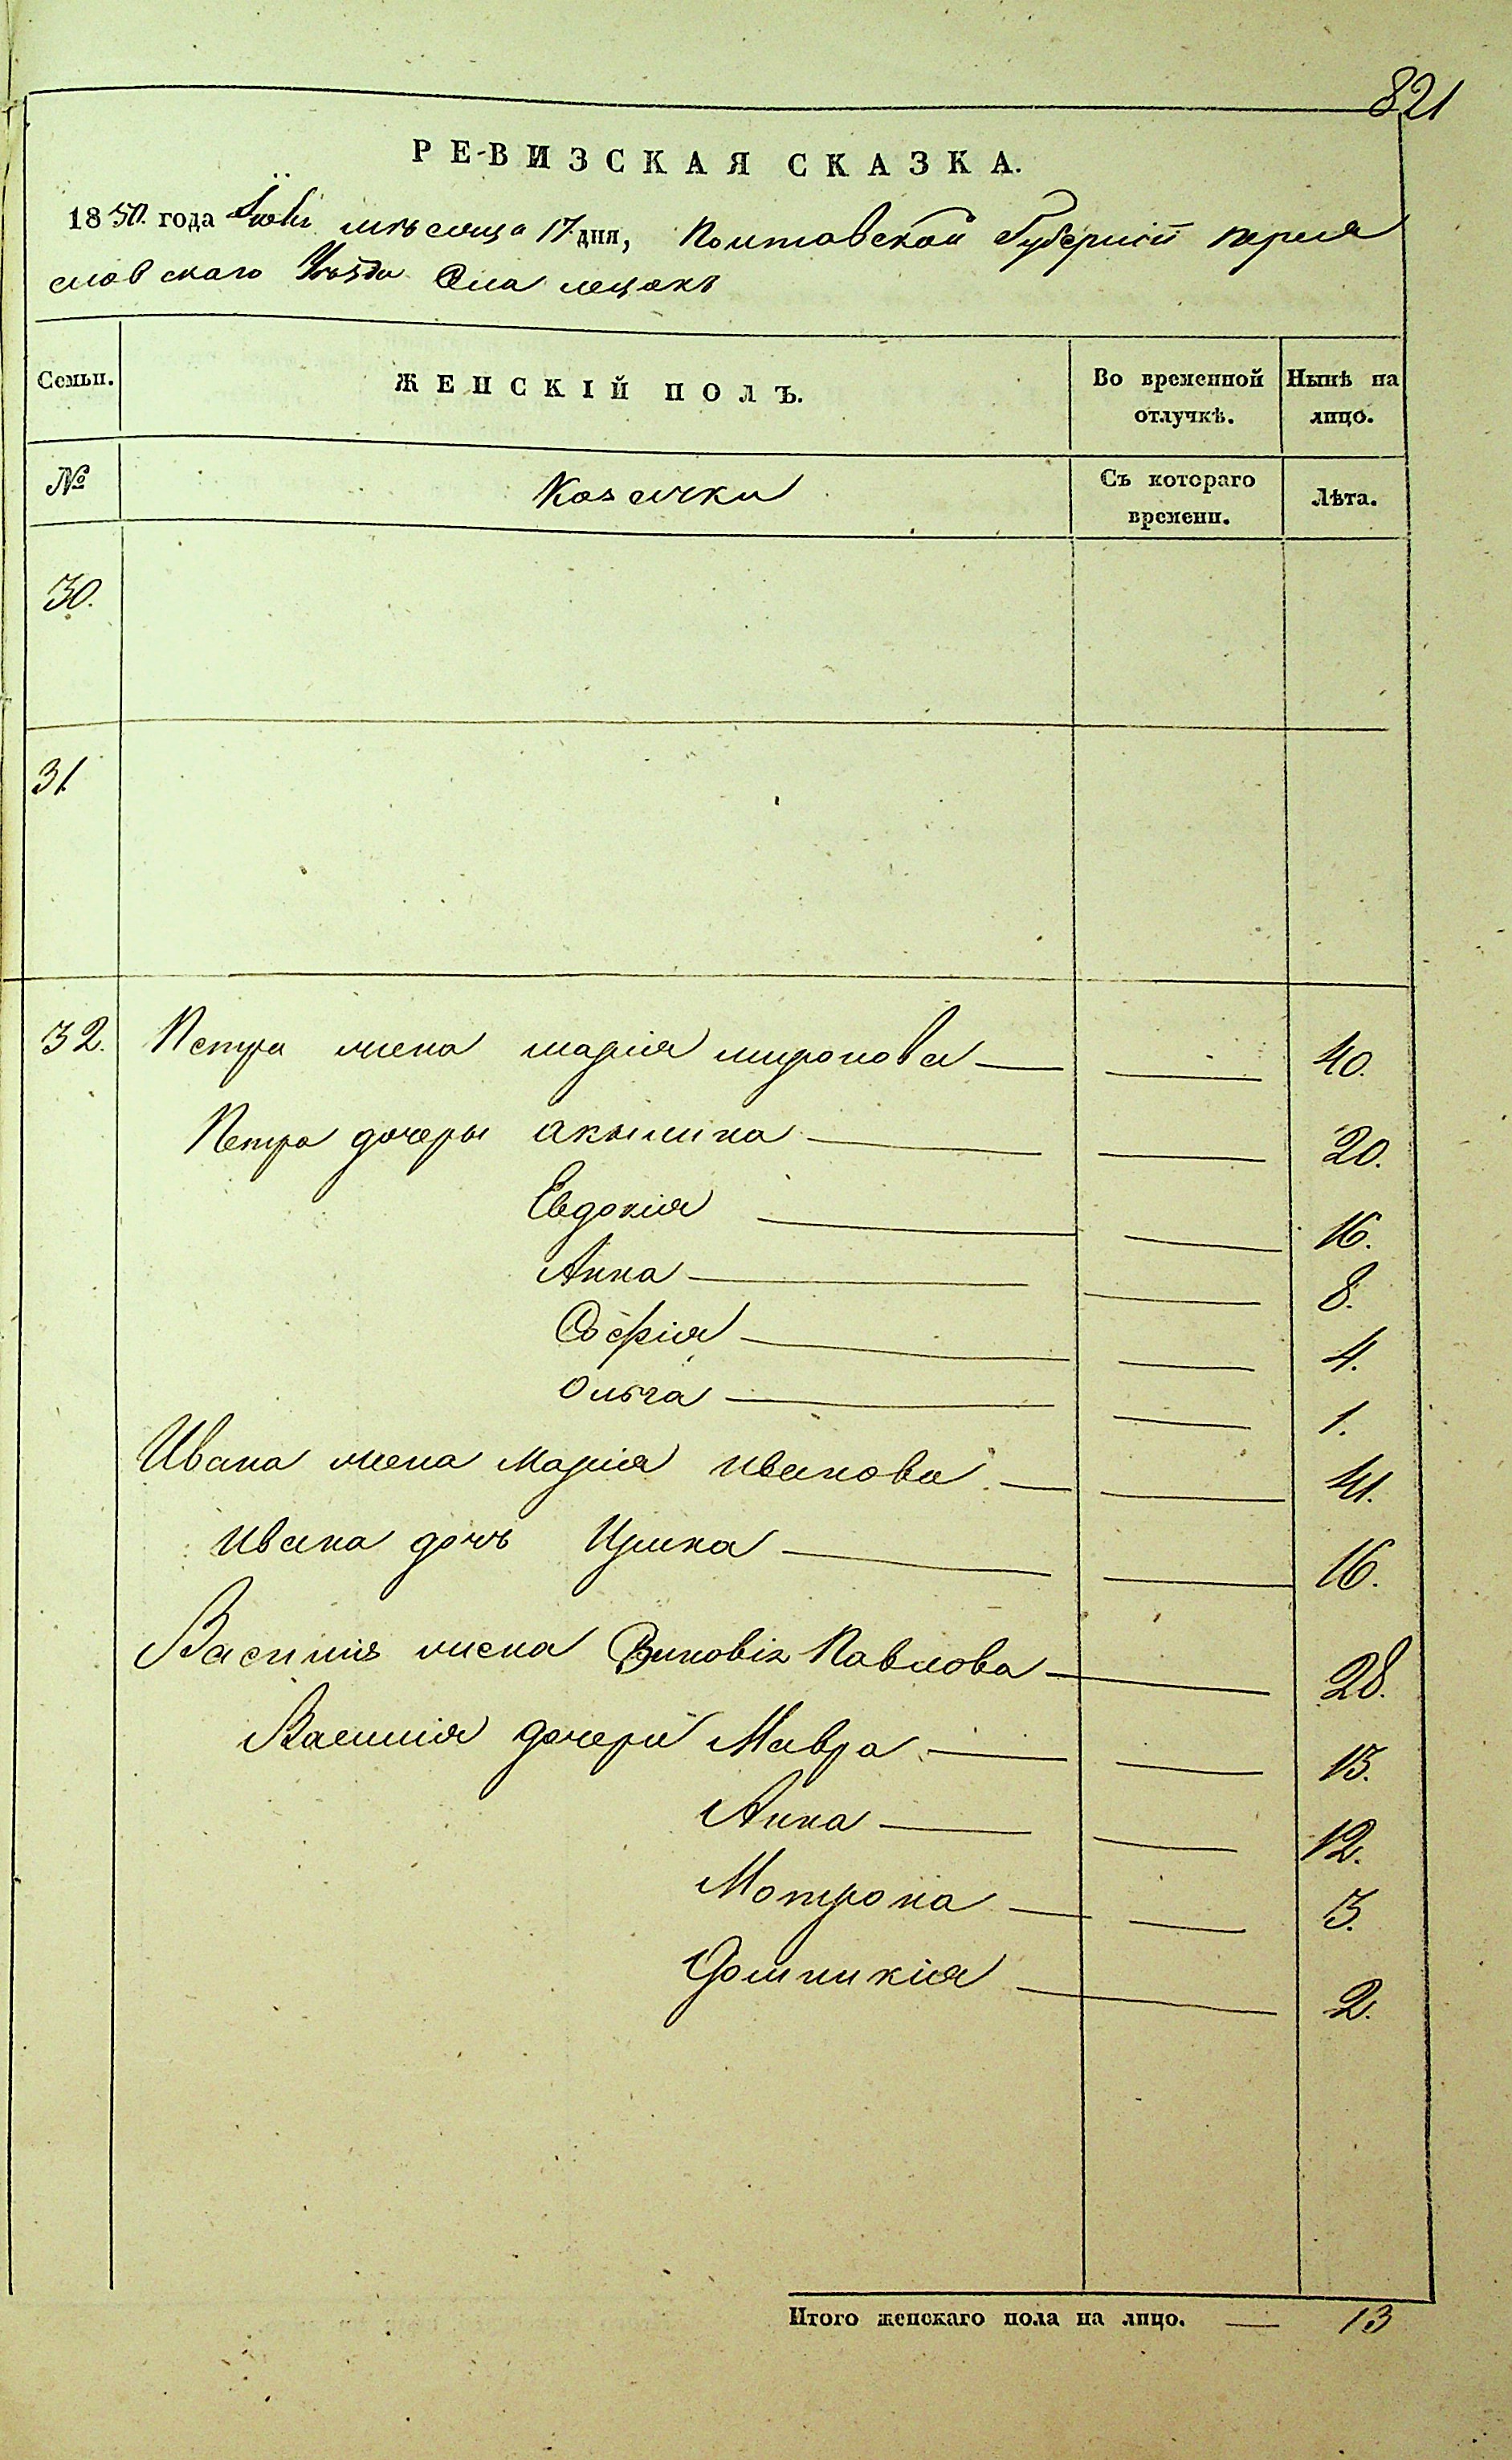 821
РЕВИЗСКАЯ СКАЗКА.
1850. года мѣсяца 17 дня, Полтавской Губерніи перея
славскаго Уѣзда Села лецокъ
Семьи. ЖЕНСКІЙ ПОЛЪ. Во временной отлучкѣ. Нынѣ на лицо.
№ Козачки Съ котораго времени. Лѣта.
30.
31.
32. Петра жена марія миронова — — 40.
Петра дочеры акылина — — 20.
Евдокія — — 16.
Анна — — 8.
Софія — — 4.
Ольга — — 1.
Ивана жена Марія иванова — — 41.
ивана дочь Ирина — — 16.
Василія жена Зиновія Павлова — 28.
Василія дочери Мавра — — 13.
Анна — — 12.
Мотрона — — 3.
Домникія — 2.
Итого женскаго пола на лицо. — 13